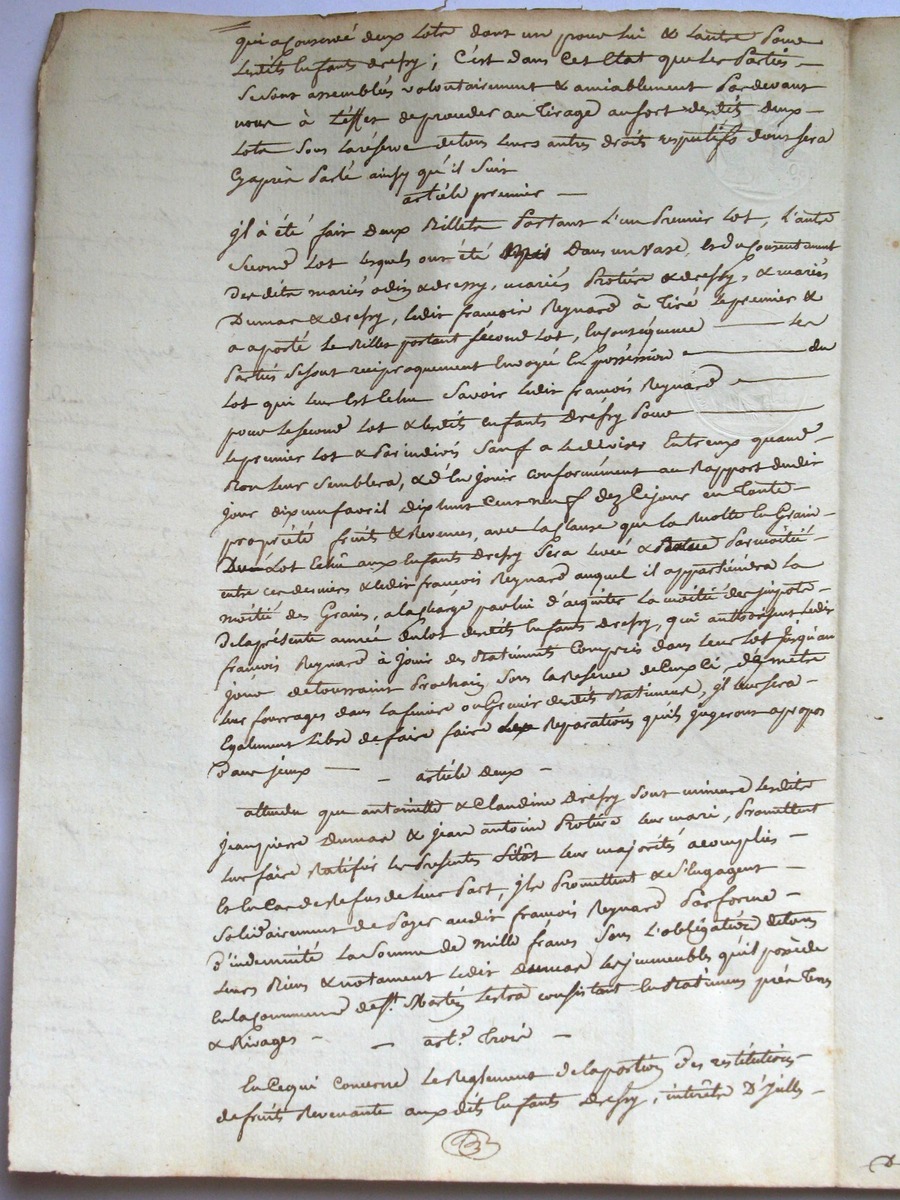 qui a conservé deux Lots dont un pour lui & Lautre Pour
Lesdits Enfants dressy ; C'est dans Cet Etat que Les Parties
Se sont assemblés volontairement & amiablement Pardevant
nous à L'effet de proceder au Tirage au fort desdits deux
Lots Sous La réserve de tous Leurs autres droits respectifs dont sera
Cyaprès Parlé ainsy qu'il Suit
article premier
jl à été fait deux Billets Portant L'un Premier Lot, L'autre
Second Lot Lesquels ont été mis Dans un Vase, Et du Consentement
Desdits mariés odin & dressy, mariés Protière & dressy, & mariés
Dumas & dressy, Ledit françois Reynard à Tiré Le premier &
a aporté Le Billet portant Second Lot, En conséquence Les
Parties Se sont reciproquement Envoyée En possession du
Lot qui Leur Est Echu Savoir Ledit françois Reynard
pour Le Second Lot & Lesdits enfants Dressy Pour
Le premier Lot & Par indivis Sauf a Le diviser Entreux quand
Bon Leur Semblera, & d'En jouir conformément au Rapport dudit
jour dix neuf avril dix huit Cent neuf dez Ce jour en Toute
propriété fruits & Revenus, avec La Clause que La Récolte En Grain
Du Lot Echû aux Enfants Dressy Sera Levée & Par moitié
entre ces derniers & Ledit françois Reynard auquel il appartiendra La
moitié des Grains, a La charge par lui d'acquiter La moitié des jmpots
De La présente année du Lot desdits Enfants Dressy, qui authorisent Ledit
françois Reynard à Jouir des Batiments Compris dans Leur Lot Jusqu'au
jour de toussaint Prochain Sous La Reserve de Ceux Ci de mettre
Leur fourrages dans La feniere ou Grenier desdits Batiments, jl Leur sera
Egalement Libre de faire faire Les Reparations qu'ils jugeront apropos
D'aux jceux
article deux
attendu que antoinette & Claudine Dressy Sont mineurs Lesdits
jean pierre Dumas & jean antoine Protière Leur mari, Promettent
Leur faire Ratifier Les Presentes Sitôt Leur majorités acomplies
Et En Cas de Refus de Leur Part, jls Promettent & S'Engagent
Solidairement de Payer audit françois Reynard Par forme
D'indemnité La Somme de mille francs Sous L'obligation de tous
Leurs Biens & notament Ledit Dumas Les jmmeubles qu'il posséde
En La Commune de St. Martin Lestra consistant En Batiments prés Terres
& Rivages
art.e Trois
En Ce qui Concerne Le Reglement de La portion des restitutions
de fruits Revenante aux dits Enfants Dressy, intérêts D'jcelles